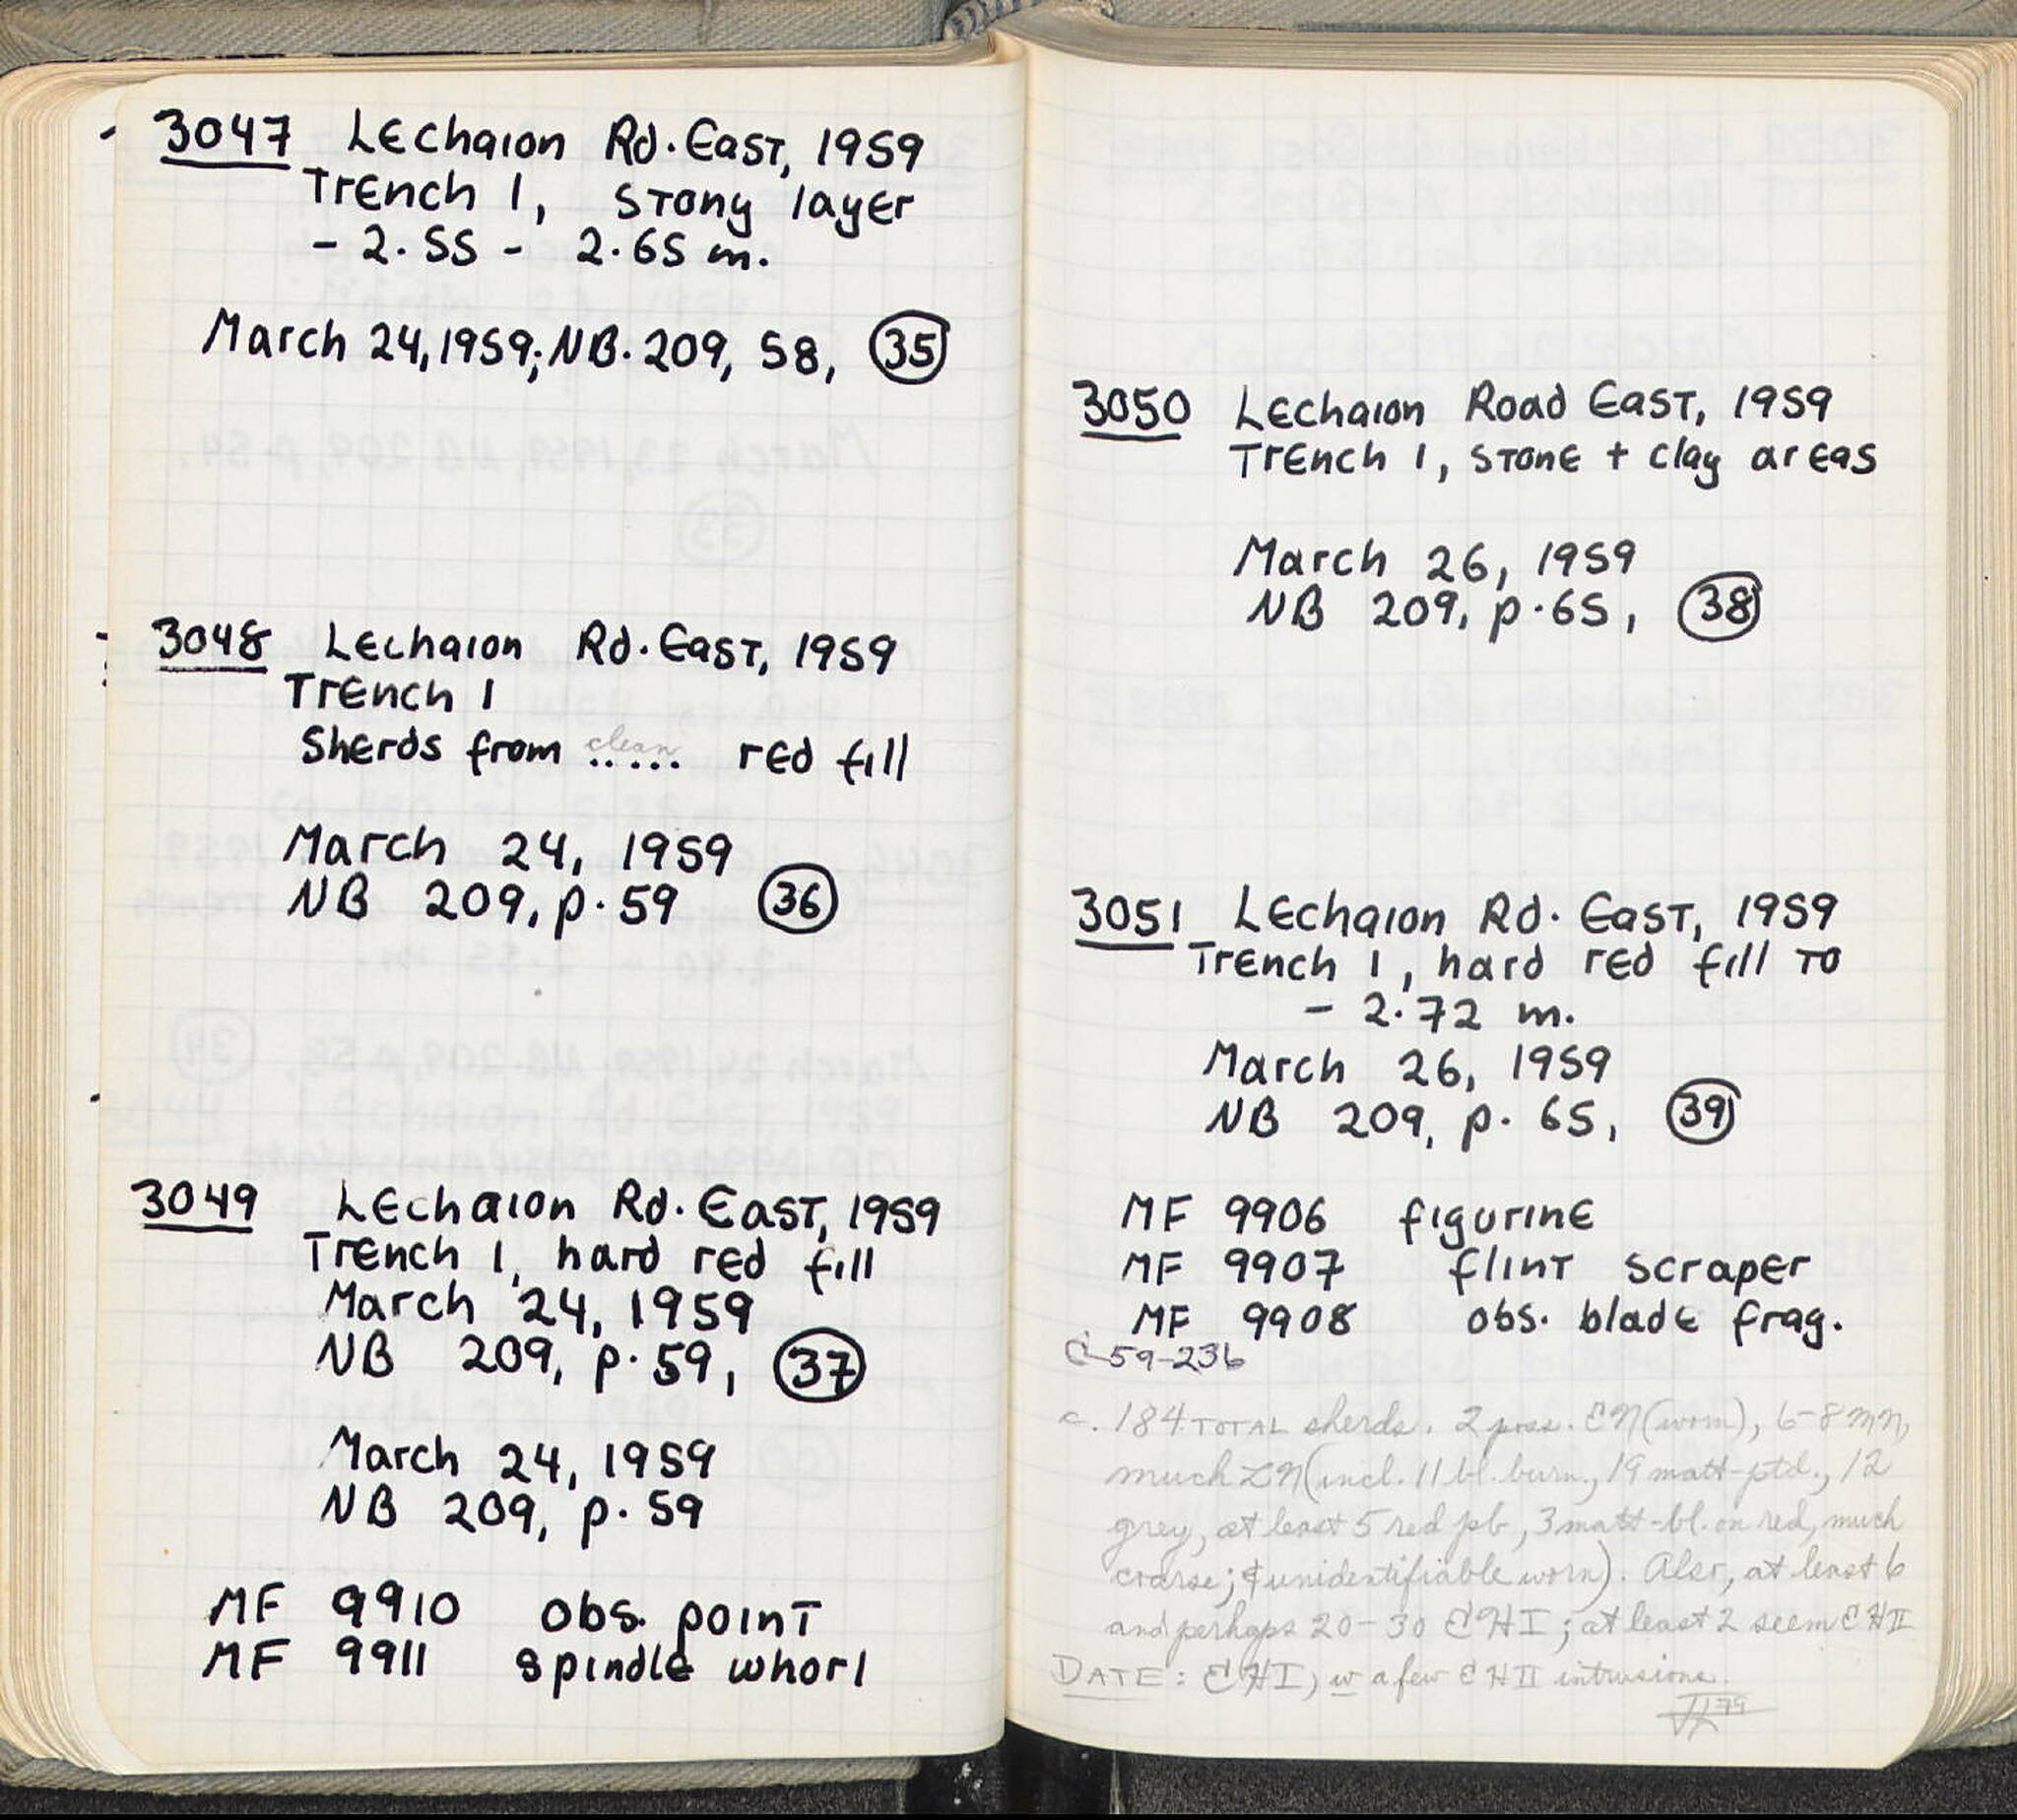 3047 Lechaion Rd. East, 1959
Trench 1, stony layer
- 2.55 - 2.65 m.
March 24, 1959; NB. 209, 58, 35
3048 Lechaion Rd. East, 1959
Trench 1
Sherds from clean ..... red fill
March 24, 1959
NB 209, p. 59 36
3049 Lechaion Rd. East, 1959
Trench 1, hard red fill
March 24, 1959
NB 209, p. 59, 37
March 24, 1959
NB 209, p. 59
MF 9910 obs. point
MF 9911 spindle whorl
3050 Lechaion Road East, 1959
Trench 1, stone + clay areas
March 26, 1959
NB 209, p. 65, 38
3051 Lechaion Rd. East, 1959
Trench 1, hard red fill to
- 2.72 m.
March 26, 1959
NB 209, p. 65, 39
MF 9906 figurine
MF 9907 flint scraper
MF 9908 obs. blade frag.
C-59-236
c. 184 TOTAL sherds. 2 poss. EN (worn), 6-8 MN,
much LN (incl. 11 bl. burn., 19 matt-ptd., 12
grey, at least 5 red pb, 3 matt-bl. on red, much
coarse; & unidentifiable worn). Also, at least 6
and perhaps 20-30 EHI; at least 2 seem EHII
DATE: EHI, w a few EHII intrusions.